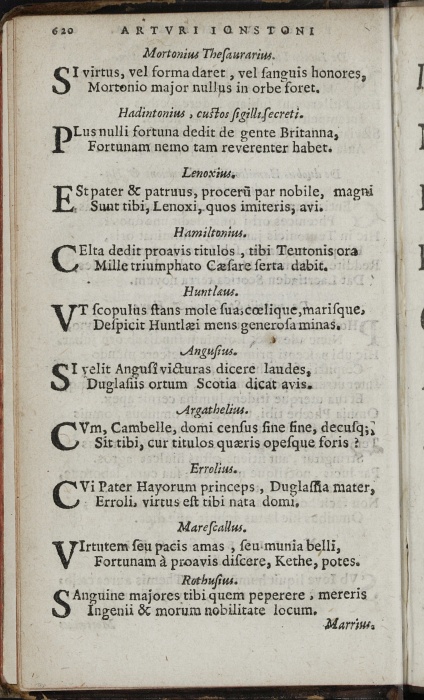 620 ARTVRI IONSTONI
Mortonius Theſaurarius.
SI virtus, vel forma daret, vel ſanguis honores,
Mortonio major nullus in orbe foret.
Hadintonius, cuſtos ſigilli ſecreti.
PLus nulli fortuna dedit de gente Britanna,
Fortunam nemo tam reverenter habet.
Lenoxius.
ESt pater & patruus, procerũ par nobile, magni
Sunt tibi, Lenoxi, quos imiteris, avi.
Hamiltonius.
CElta dedit proavis titulos, tibi Teutonis ora
Mille triumphato Cæſare ſerta dabit.
Huntlæus.
VT ſcopulus ſtans mole ſua, cœlique, mariſque,
Deſpicit Huntlæi mens generoſa minas.
Anguſius.
SI velit Anguſi victuras dicere laudes,
Duglaſiis ortum Scotia dicat avis.
Argathelius.
CVm, Cambelle, domi cenſus ſine fine, decuſq;,
Sit tibi, cur titulos quæris opeſque foris?
Errolius.
CVi Pater Hayorum princeps, Duglaſſia mater,
Erroli, virtus eſt tibi nata domi.
Mareſcallus.
VIrtutem ſeu pacis amas, ſeu munia belli,
Fortunam à proavis diſcere, Kethe, potes.
Rothuſius.
SAnguine majores tibi quem peperere, mereris
Ingenii & morum nobilitate locum.
Marrius.